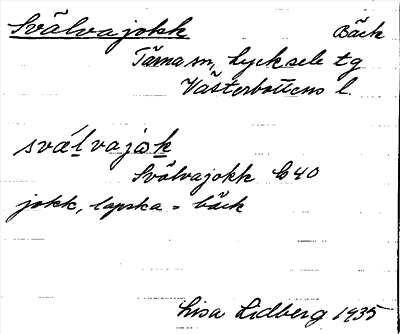 Svälvajokk Bäck
Tärna sn, Lycksele tg
Västerbottens l.
sválvajåk
Svälvajokk G40
jokk, lapska = bäck
Lisa Lidberg 1935